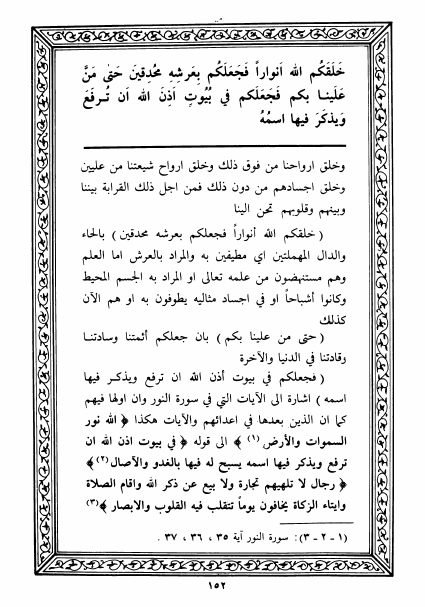 خَلَقَكُم الله اَنواراً فَجَعَلَكُم بِعَرشِهِ مُحدِقِين حَتىٰ مَنَّ
عَلَينـا بكم فَجَعَلَكم في بُيُوتٍ اَذِنَ الله اَن تُـرفَعَ
وَيذكَرَ فيها اسمُهُ
وخلق ارواحنا من فوق ذلك وخلق ارواح شيعتنا من عليين
وخلق اجسادهم من دون ذلك فمن اجل ذلك القرابة بيننا
وبينهم وقلوبهم تحن الينا
( خلقكم الله أنواراً فجعلكم بعرشه محدقين ) بالحاء
والدال المهملتين اي مطيفين به والمراد بالعرش اما العلم
وهم مستنهضون من علمه تعالى او المراد به الجسم المحيط
وكانوا أشباحاً او في اجساد مثاليه يطوفون به او هم الآن
كذلك
( حتى من علينا بكم ) بان جعلكم أئمتنا وسادتنا
وقادتنا في الدنيا والآخرة
( فجعلكم في بيوت أذن الله ان ترفع ويذكـر فيها
اسمه ) اشارة الى الآيات التي في سورة النور وان اولها فيهم
كما ان الذين بعدها في اعدائهم والآيات هكذا ﴿ الله نور
السموات والأرض (١) ﴾ الى قوله ﴿ في بيوت اذن الله ان
ترفع ويذكر فيها اسمه يسبح له فيها بالغدو والآصال (٢) ﴾
﴿ رجال لا تلهيهم تجارة ولا بيع عن ذكر الله واقام الصلاة
وايتاء الزكاة يخافون يوماً تتقلب فيه القلوب والابصار ﴾(٣)
(١ - ٢ - ٣): سورة النور آية ٣٥ ، ٣٦ ، ٣٧ .
١٥٢